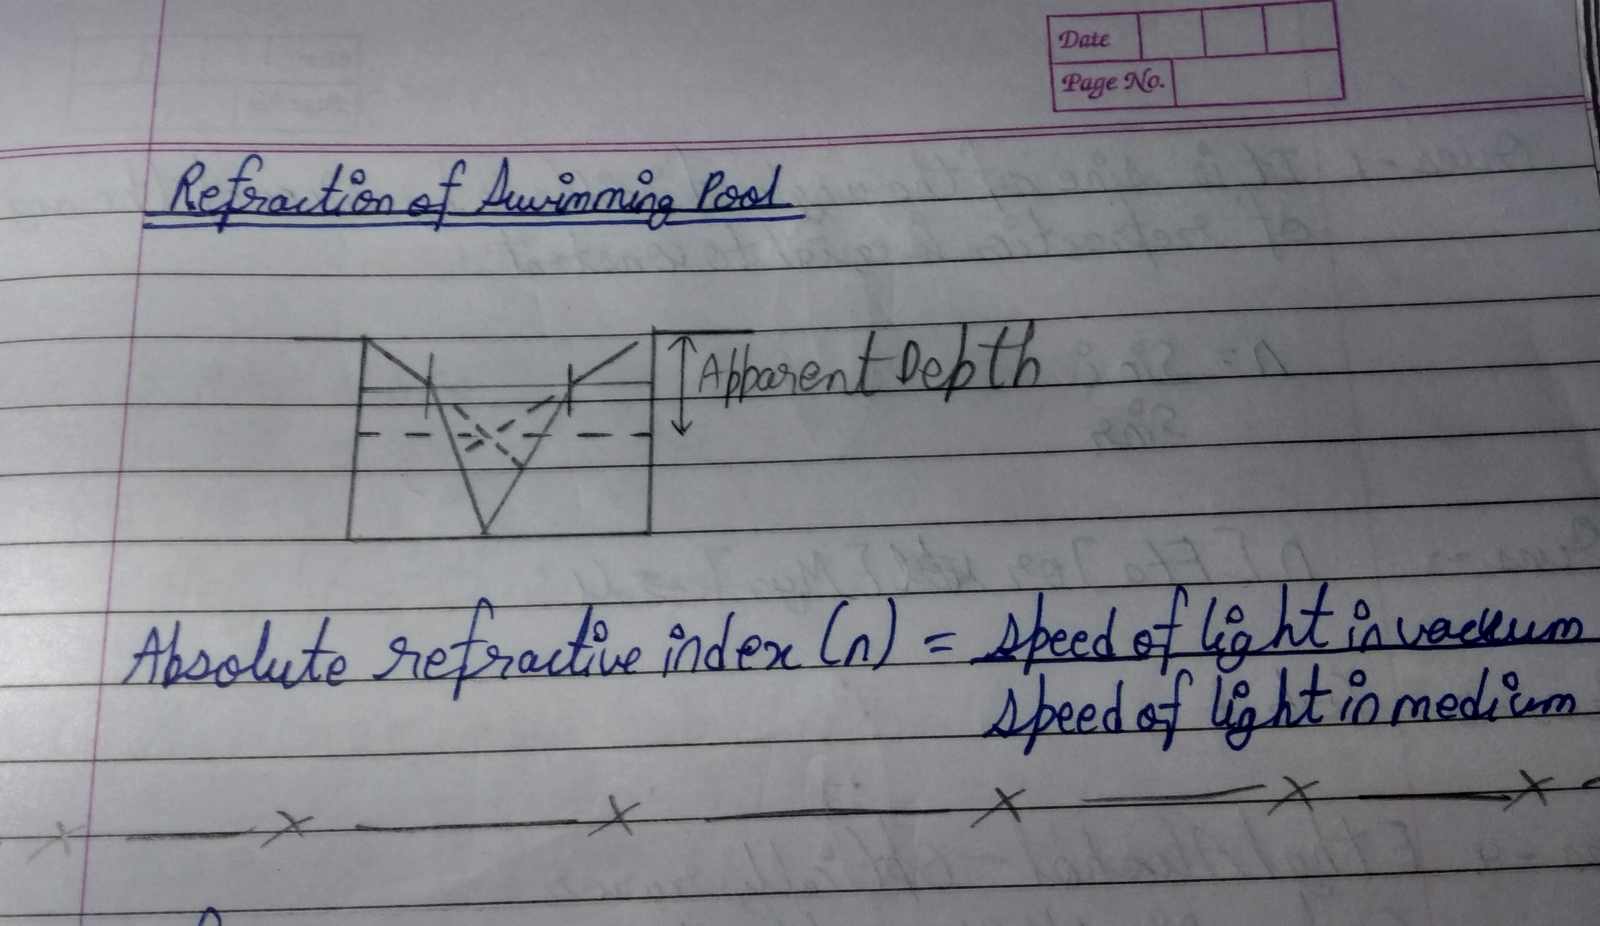 Date
Page No.
Refraction of Swimming Pool
Apparent Depth
Absolute refractive index (n) = speed of light in vackum
speed of light in medium